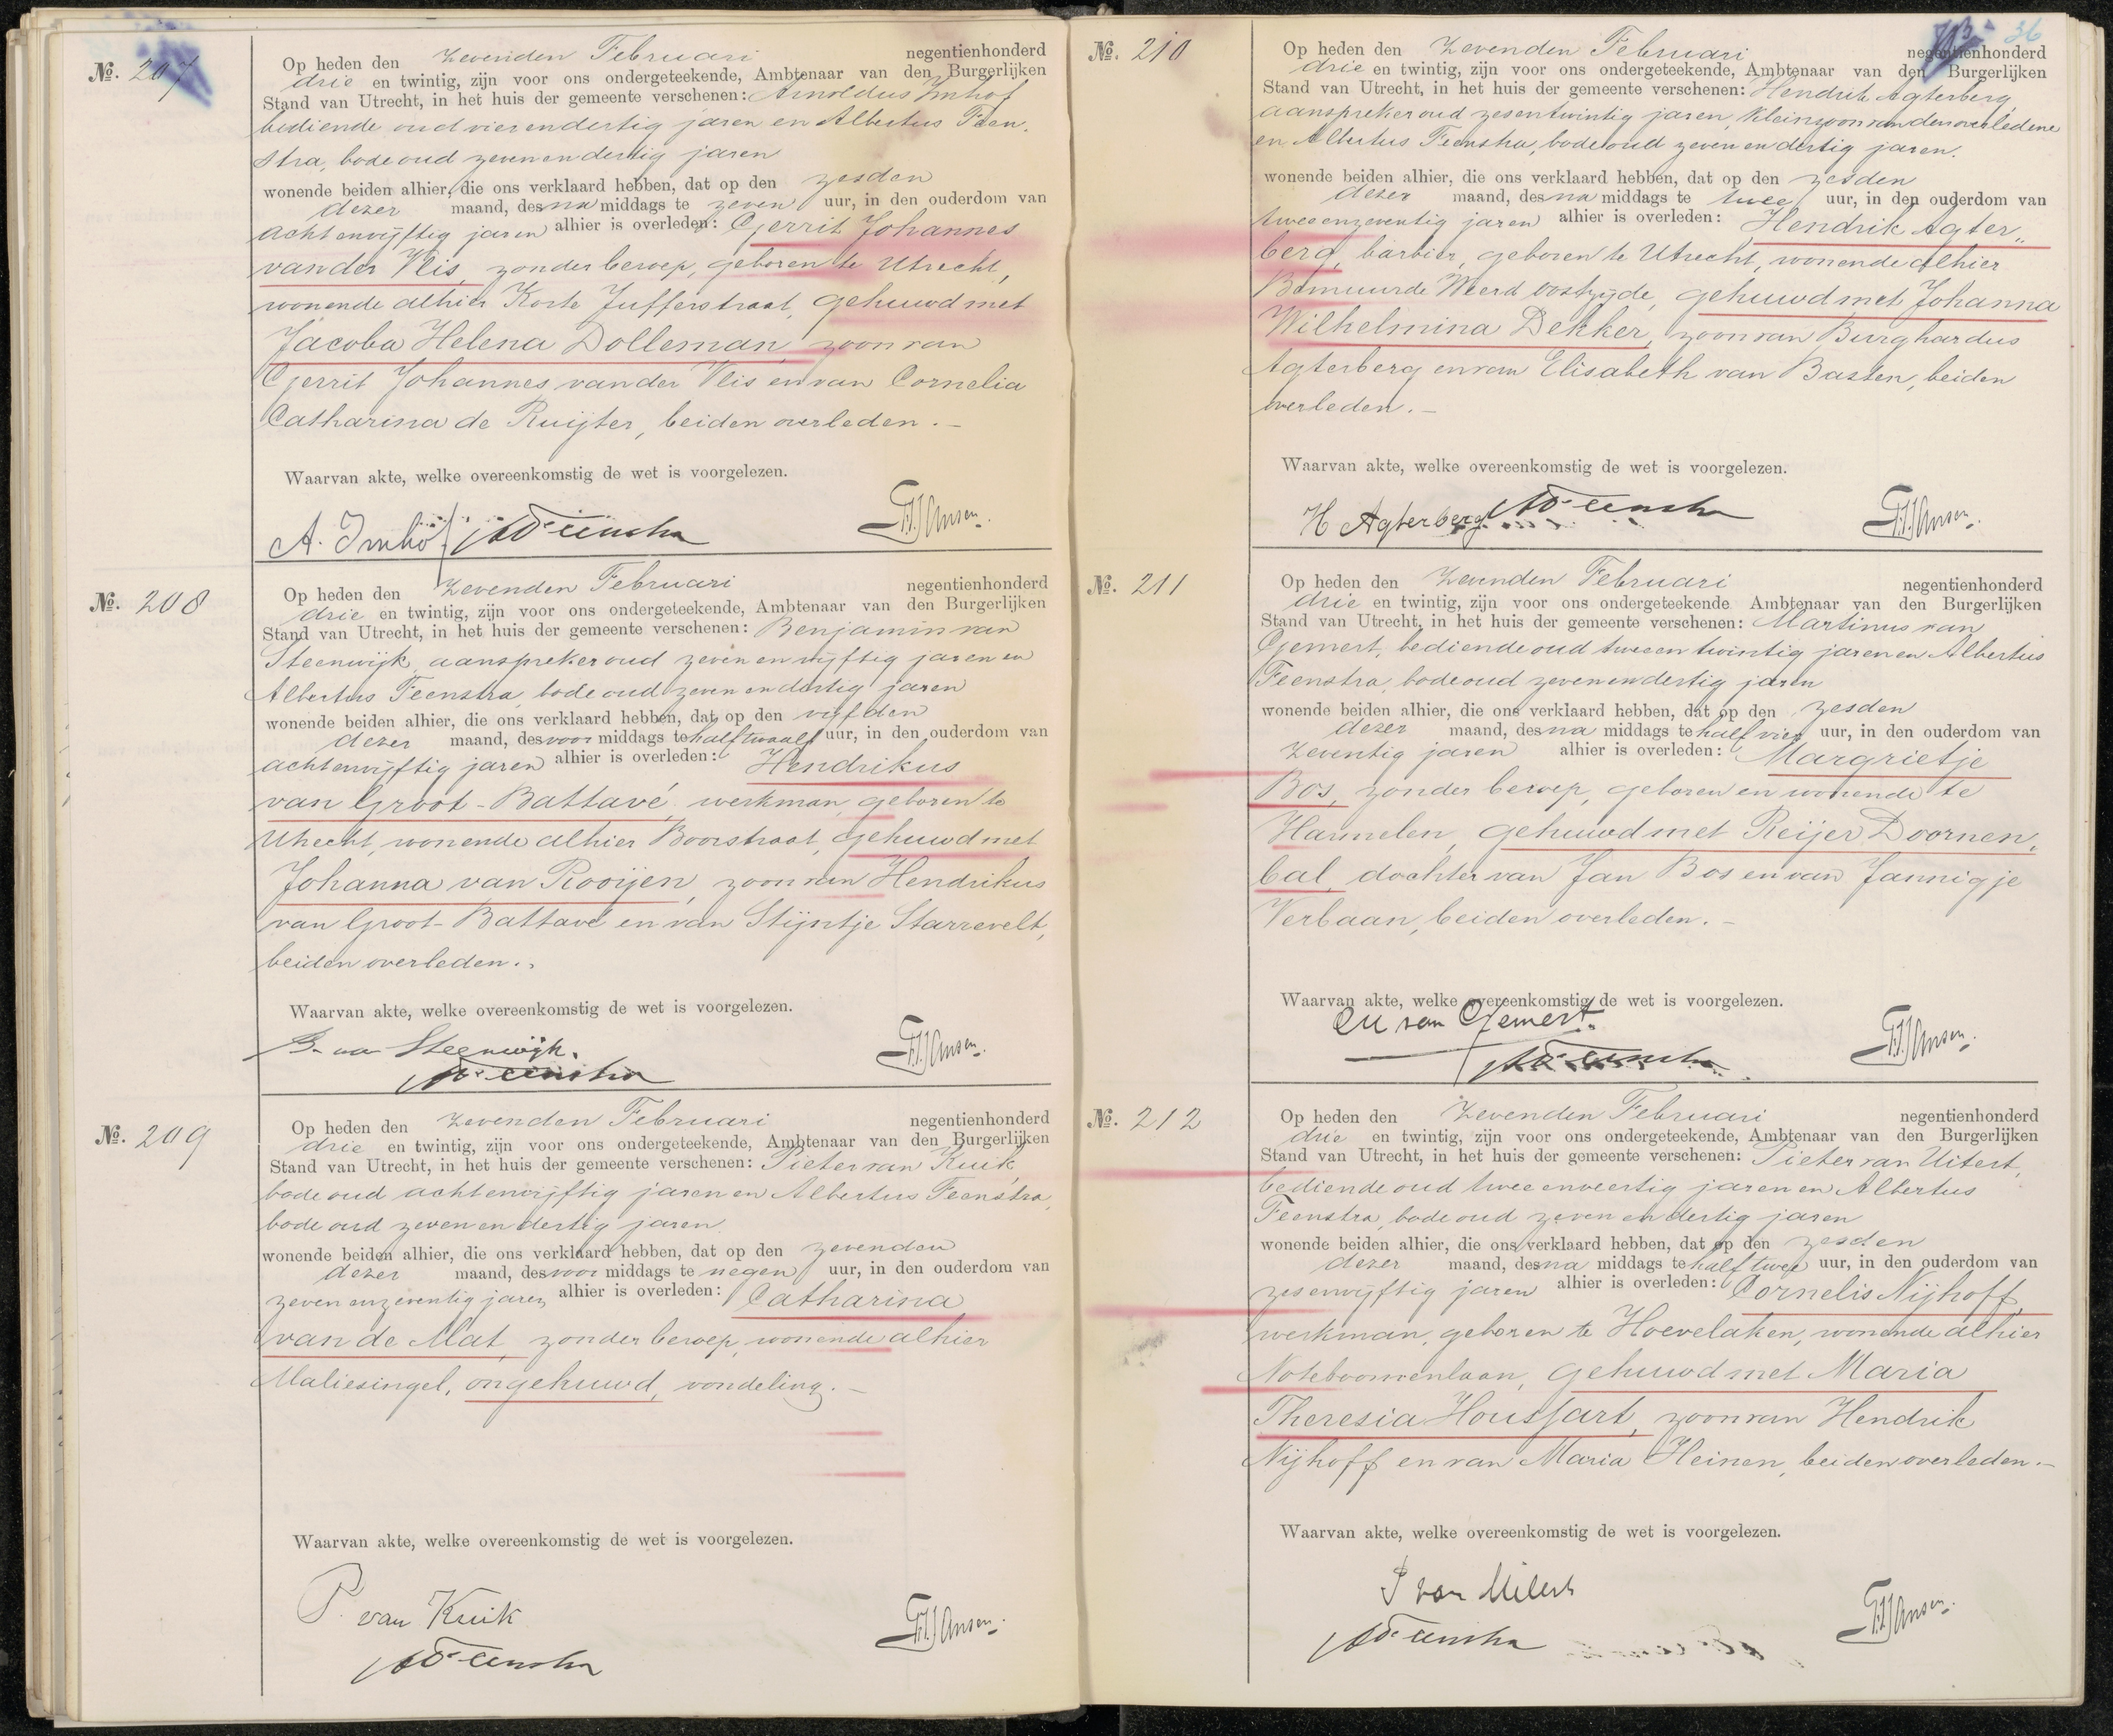 No. 207
Op heden den zevenden Februari negentienhonderd
drie en twintig, zijn voor ons ondergeteekende, Ambtenaar van den Burgerlijken
Stand van Utrecht, in het huis der gemeente verschenen: Arnoldus Imhof
bediende oud vierendertig jaren en Albertus Feen-
stra, bode oud zevenendertig jaren
wonende beiden alhier, die ons verklaard hebben, dat op den zesden
dezer maand, des na middags te zeven uur, in den ouderdom van
achtenvijftig jaren alhier is overleden: Gerrit Johannes
van der Vlis, zonder beroep, geboren te Utrecht,
wonende alhier Korte Jufferstraat, gehuwd met
Jacoba Helena Dolleman, zoon van
Gerrit Johannes van der Vlis en van Cornelia
Catharina de Ruijter, beiden overleden.-
Waarvan akte, welke overeenkomstig de wet is voorgelezen.
A. Imhof AFeenstra Jansen.
No. 208
Op heden den zevenden Februari negentienhonderd
drie en twintig, zijn voor ons ondergeteekende, Ambtenaar van den Burgerlijken
Stand van Utrecht, in het huis der gemeente verschenen: Benjamin van
Steenwijk, aanspreker oud zevenenvijftig jaren en
Albertus Feenstra, bode oud zevenendertig jaren
wonende beiden alhier, die ons verklaard hebben, dat op den vijfden
dezer maand, des voor middags te half twaalf uur, in den ouderdom van
achtenvijftig jaren alhier is overleden: Hendrikus
van Groot-Battavé, werkman, geboren te
Utrecht, wonende alhier Boorstraat, gehuwd met
Johanna van Rooijen, zoon van Hendrikus
van Groot-Battavé en van Stijntje Starrevelt,
beiden overleden.
Waarvan akte, welke overeenkomstig de wet is voorgelezen.
B. van Steenwijk. Jansen.
AFeenstra
No. 209
Op heden den zevenden Februari negentienhonderd
drie en twintig, zijn voor ons ondergeteekende, Ambtenaar van den Burgerlijken
Stand van Utrecht, in het huis der gemeente verschenen: Pieter van Kuik,
bode oud achtenvijftig jaren en Albertus Feenstra,
bode oud zevenendertig jaren
wonende beiden alhier, die ons verklaard hebben, dat op den zevenden
dezer maand, des voor middags te negen uur, in den ouderdom van
zevenenzeventig jaren alhier is overleden: Catharina
van de Mat, zonder beroep, wonende alhier
Maliesingel, ongehuwd, vondeling.-
Waarvan akte, welke overeenkomstig de wet is voorgelezen.
P. van Kuik Jansen.
AFeenstra
36
No. 210
Op heden den zevenden Februari negentienhonderd
drie en twintig, zijn voor ons ondergeteekende, Ambtenaar van den Burgerlijken
Stand van Utrecht, in het huis der gemeente verschenen: Hendrik Agterberg
aanspreker oud zesentwintig jaren, kleinzoon van den overledene
en Albertus Feenstra, bode oud zeven en dertig jaren.
wonende beiden alhier, die ons verklaard hebben, dat op den zesden
dezer maand, des na middags te twee uur, in den ouderdom van
tweeenzeventig jaren alhier is overleden: Hendrik Agter-
berg, barbier, geboren te Utrecht, wonende alhier
Bemuurde Weerd Oostzijde, gehuwd met Johanna
Wilhelmina Dekker, zoon van Burghardus
Agterberg en van Elisabeth van Basten, beiden
overleden.-
Waarvan akte, welke overeenkomstig de wet is voorgelezen.
H Agterberg AFeenstra Jansen.
No. 211
Op heden den zevenden Februari negentienhonderd
drie en twintig, zijn voor ons ondergeteekende Ambtenaar van den Burgerlijken
Stand van Utrecht, in het huis der gemeente verschenen: Martinus van
Gemert, bediende oud tweeentwintig jaren en Albertus
Feenstra, bode oud zevenendertig jaren
wonende beiden alhier, die ons verklaard hebben, dat op den zesden
dezer maand, des na middags te half vier uur, in den ouderdom van
zeventig jaren alhier is overleden: Margrietje
Bos, zonder beroep, geboren en wonende te
Harmelen, gehuwd met Reijer Doornen-
bal, dochter van Jan Bos en van Jannigje
Verbaan, beiden overleden.-
Waarvan akte, welke overeenkomstig de wet is voorgelezen.
M van Gemert. Jansen.
AFeenstra
No. 212
Op heden den zevenden Februari negentienhonderd
drie en twintig, zijn voor ons ondergeteekende, Ambtenaar van den Burgerlijken
Stand van Utrecht, in het huis der gemeente verschenen: Pieter van Uitert,
bediende oud tweeenveertig jaren en Albertus
Feenstra, bode oud zeven en dertig jaren
wonende beiden alhier, die ons verklaard hebben, dat op den zesden
dezer maand, des na middags te half twee uur, in den ouderdom van
zesenvijftig jaren alhier is overleden: Cornelis Nijhoff,
werkman, geboren te Hoevelaken, wonende alhier
Noteboomenlaan, gehuwd met Maria
Theresia Houssart, zoon van Hendrik
Nijhoff en van Maria Heinen, beiden overleden.-
Waarvan akte, welke overeenkomstig de wet is voorgelezen.
P van Uitert Jansen.
AFeenstra